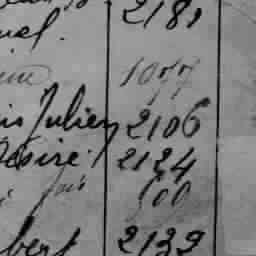 2181
uel.
1077
is Julien 2106
Désiré. 2124
500
bert 2132